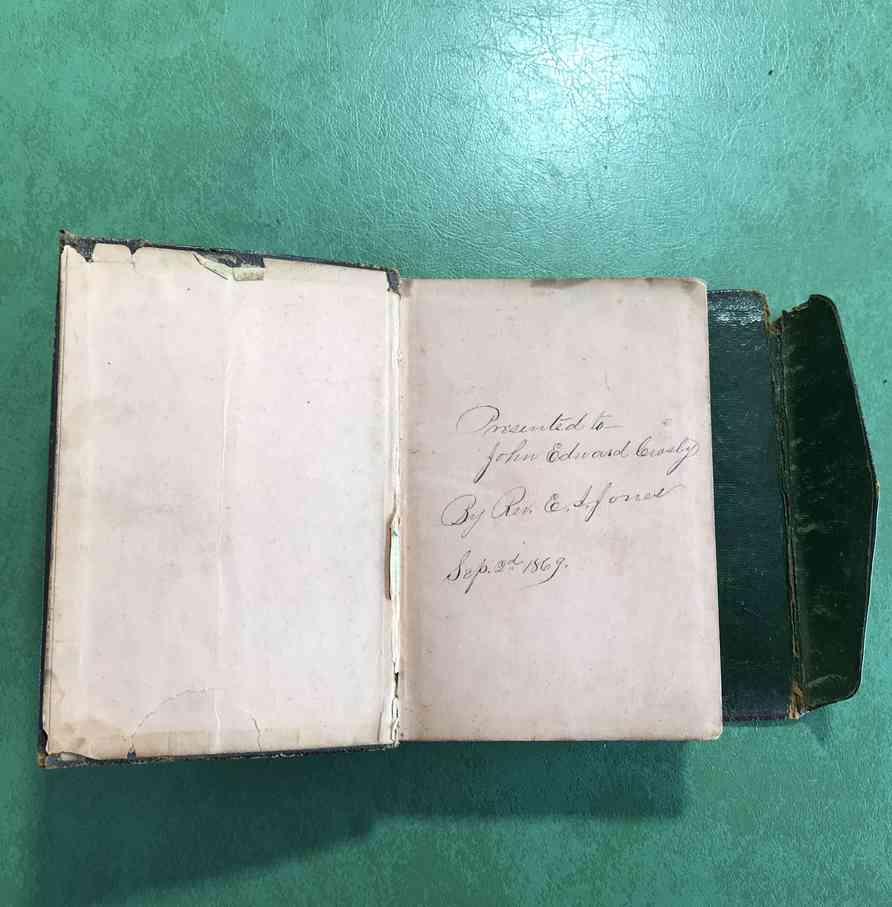 Presented to
John Edward Crosby
By Rev. E. I. Jones
Sep. 2d 1869.